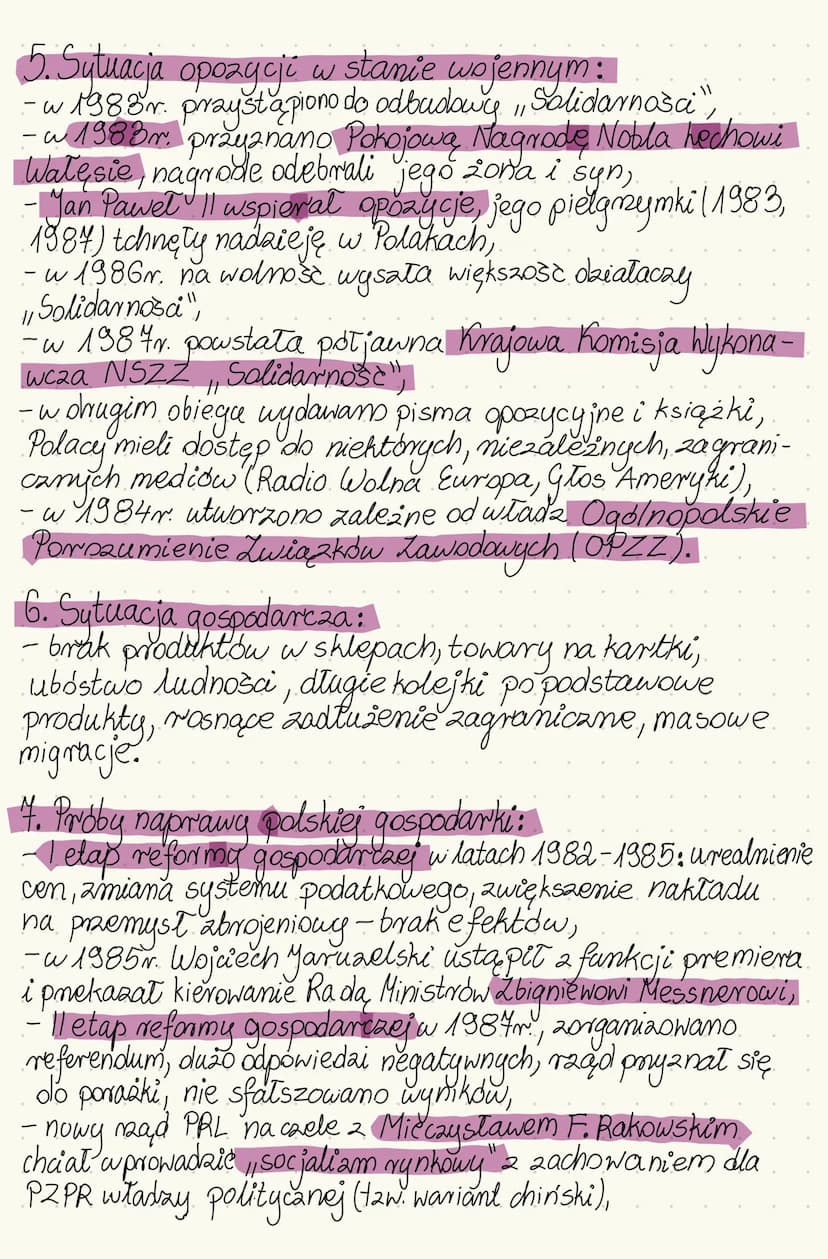 5. Sytuacja opozycji w stanie wojennym:
- w 1983r. przystąpiono do odbudowy „Solidarności",
- w 1983r. przyznano Pokojową Nagrodę Nobla Lechowi
Wałęsie, nagrodę odebrali jego żona i syn,
- Jan Paweł II wspierał opozycję, jego pielgrzymki (1983,
1987) tchnęły nadzieję w Polakach,
- w 1986r. na wolność wyszła większość działaczy
„Solidarności",
- w 1987r. powstała półjawna Krajowa Komisja Wykona-
wcza NSZZ „Solidarność",
- w drugim obiegu wydawano pisma opozycyjne i książki,
Polacy mieli dostęp do niektórych, niezależnych, zagrani-
cznych mediów (Radio Wolna Europa, Głos Ameryki),
- w 1984r. utworzono zależne od władz Ogólnopolskie
Porozumienie Związków Zawodowych (OPZZ).
6. Sytuacja gospodarcza:
- brak produktów w sklepach, towary na kartki,
ubóstwo ludności, długie kolejki po podstawowe
produkty, rosnące zadłużenie zagraniczne, masowe
migracje.
7. Próby naprawy polskiej gospodarki:
- I etap reformy gospodarczej w latach 1982-1985: urealnienie
cen, zmiana systemu podatkowego, zwiększenie nakładu
na przemysł zbrojeniowy - brak efektów,
- w 1985r. Wojciech Jaruzelski ustąpił z funkcji premiera
i przekazał kierowanie Radą Ministrów Zbigniewowi Messnerowi,
- II etap reformy gospodarczej w 1987r., zorganizowano
referendum, dużo odpowiedzi negatywnych, rząd przyznał się
do porażki, nie sfałszowano wyników,
- nowy rząd PRL na czele z Mieczysławem F. Rakowskim
chciał wprowadzić „socjalizm rynkowy" z zachowaniem dla
PZPR władzy politycznej (tzw. wariant chiński),